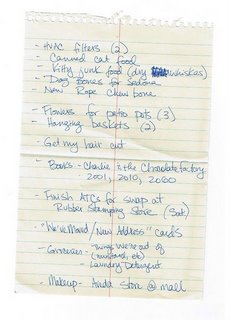 - HVAC filters (2)
- Canned cat food
- Kitty junk food (dry whiskas)
- Dog bones for Sedona
- New Rope chew bone
- Flowers for patio pots (3)
- Hanging baskets (2)
- Get my hair cut
- Books - Charlie & the Chocolate Factory
2001, 2010, 2060
- Finish ATCs for swap at
Rubber Stamping Store (Sat)
- "We've Moved / New Address" cards
- Groceries - Things we're out of
(mustard, etc)
- Laundry Detergent
- Makeup - Aveda store @ mall